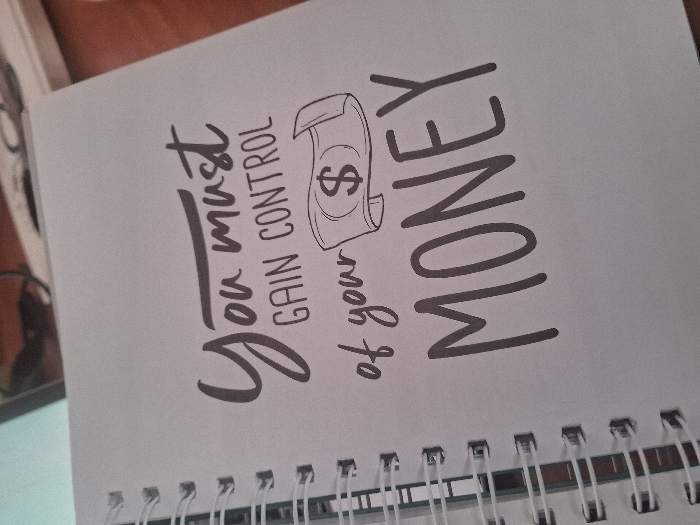 You must
GAIN CONTROL
of your $
MONEY